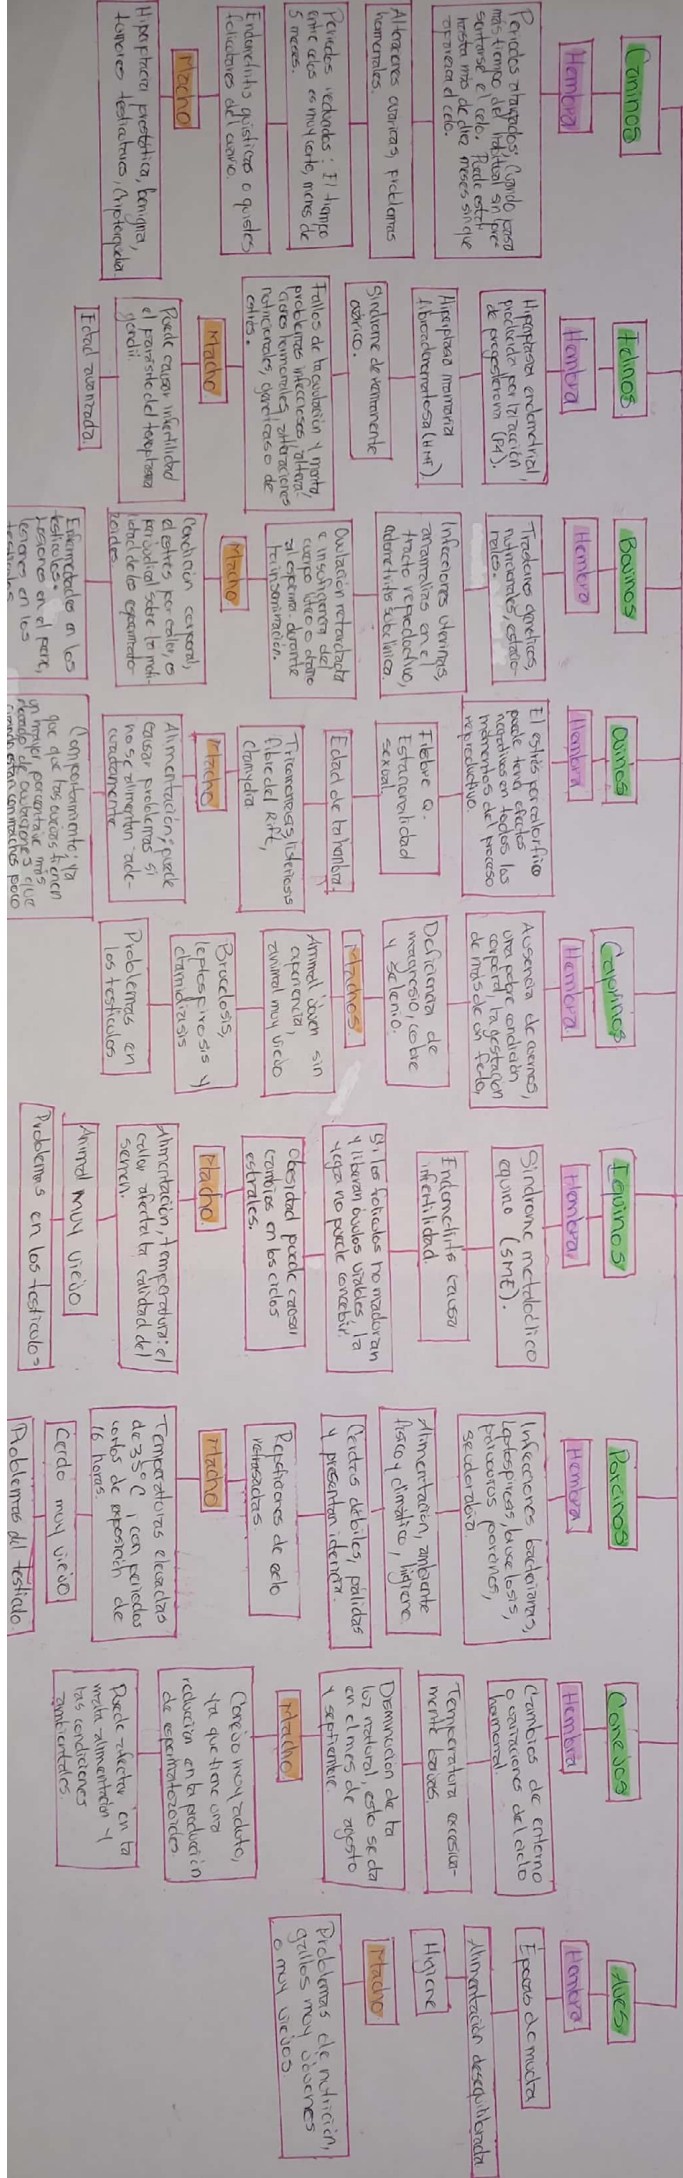 Caninos
Hembra
Periodos alargados; Cuando pasa
más tiempo del habitual sin pre-
sentarse el celo. Puede estar
hasta más de diez meses sin que
aparezca el celo.
Alteraciones ováricas, problemas
hormonales.
Periodos reducidos: El tiempo
entre celos es muy corto, menos de
5 meses.
Endometritis quisticas o quistes
foliculares del ovario.
Macho
Hiperplacia prostática, benigna,
tumores testiculares, Criptorquidia.
Felinos
Hembra
Hiperplasia endometrial,
producida por la acción
de progesterona (P4).
Hiperplasia mamaria
fibroadenomatosa (HMF)
Síndrome de remanente
ovárico.
Fallos de la ovulación y monta,
problemas infecciosos, altera-
ciones hormonales, alteraciones
nutricionales, genéticas o de
estrés.
Macho
Puede causar infertilidad
el parásito del toxoplasma
gondii.
Edad avanzada.
Bovinos
Hembra
Trastornos genéticos,
nutricionales, estacio-
nales.
Infecciones uterinas,
anomalías en el
tracto reproductivo,
endometritis subclínica.
Ovulación retardada
e insuficiencia del
cuerpo lúteo o daño
al esperma durante
la inseminación.
Macho
Condición corporal,
el estrés por calor, es
perjudicial sobre la moti-
lidad de los espermato-
zoides.
Enfermedades en los
testículos.
Lesiones en el pene,
lesiones en los
testículos
Ovinos
Hembra
El estrés por calor o frío
puede tener efectos
negativos en todos los
momentos del proceso
reproductivo.
Fiebre Q.
Estacionalidad
sexual.
Edad de la hembra
Tricomonosis, listeriosis
fibre del Rift,
clamydia
Macho
Alimentación; puede
causar problemas si
no se alimentan ade-
cuadamente
Comportamiento; ya
que que las ovejas tienen
un mayor porcentaje más
elevado de ovulaciones que
cuando están con machos poco
Caprinos
Hembra
Ausencia de cuernos,
una pobre condición
corporal, la gestación
de más de un feto,
Deficiencia de
magnesio, cobre
y selenio.
Machos
Animal joven sin
experiencia,
animal muy viejo
Brucelosis,
leptospirosis y
clamidiasis
Problemas en
los testículos
Equinos
Hembra
Síndrome metabólico
equino (SME).
Endometritis causa
infertilidad.
Si los folículos no maduran
y liberan óvulos viables, la
yegua no puede concebir.
Obesidad puede causar
cambios en los ciclos
estrales.
Macho
Alimentación, temperatura: el
calor afecta la calidad del
semen.
Animal muy viejo
Problemas en los testículos
Porcinos
Hembra
Infecciones bacterianas,
Leptospirosis, brucelosis,
parvovirus porcinos,
seudorabia.
Alimentación, ambiente
físico y climático, higiene.
Cerdas débiles, pálidas
y presentan ictericia.
Repeticiones de celo
retrasadas
Macho
Temperaturas elevadas
de 35°C, con periodos
cortos de exposición de
16 horas.
Cerdo muy viejo
Problemas del testiculo.
Conejos
Hembra
Cambios de entorno
o variaciones del ciclo
hormonal.
Temperatura excesiva-
mente bajas.
Disminución de la
luz natural, esto se da
en el mes de agosto
y septiembre.
Macho
Conejo muy adulto,
ya que tiene una
reducción en la producción
de espermatozoides.
Puede afectar en la
mala alimentación y
las condiciones
ambientales.
Aves
Hembra
Épocas de mudza
Alimentación desequilibrada
Higiene
Macho
Problemas de nutrición,
gallos muy jóvenes
o muy viejos